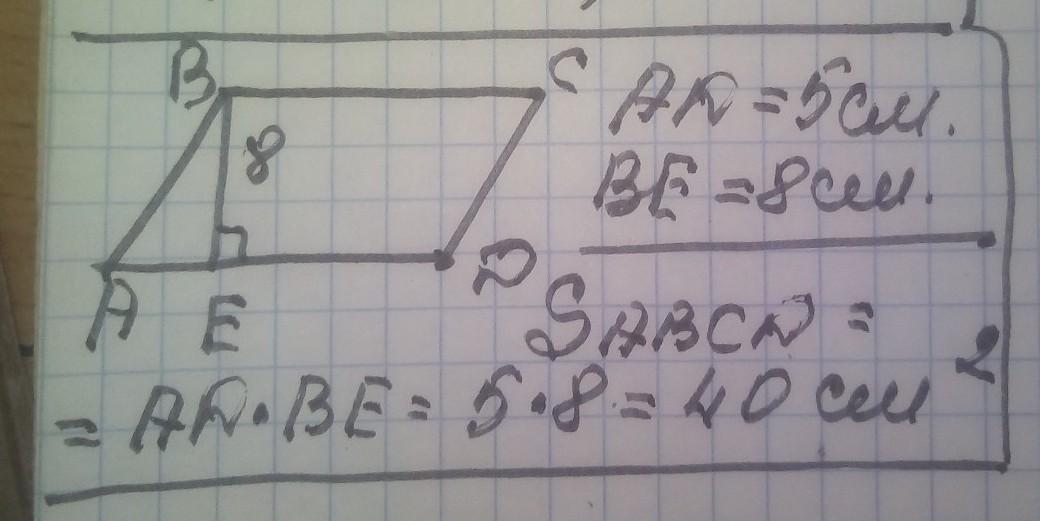 B
C
8
A
E
D
AD = 5 см.
BE = 8 см.
S ABCD =
= AD · BE = 5 · 8 = 40 см²